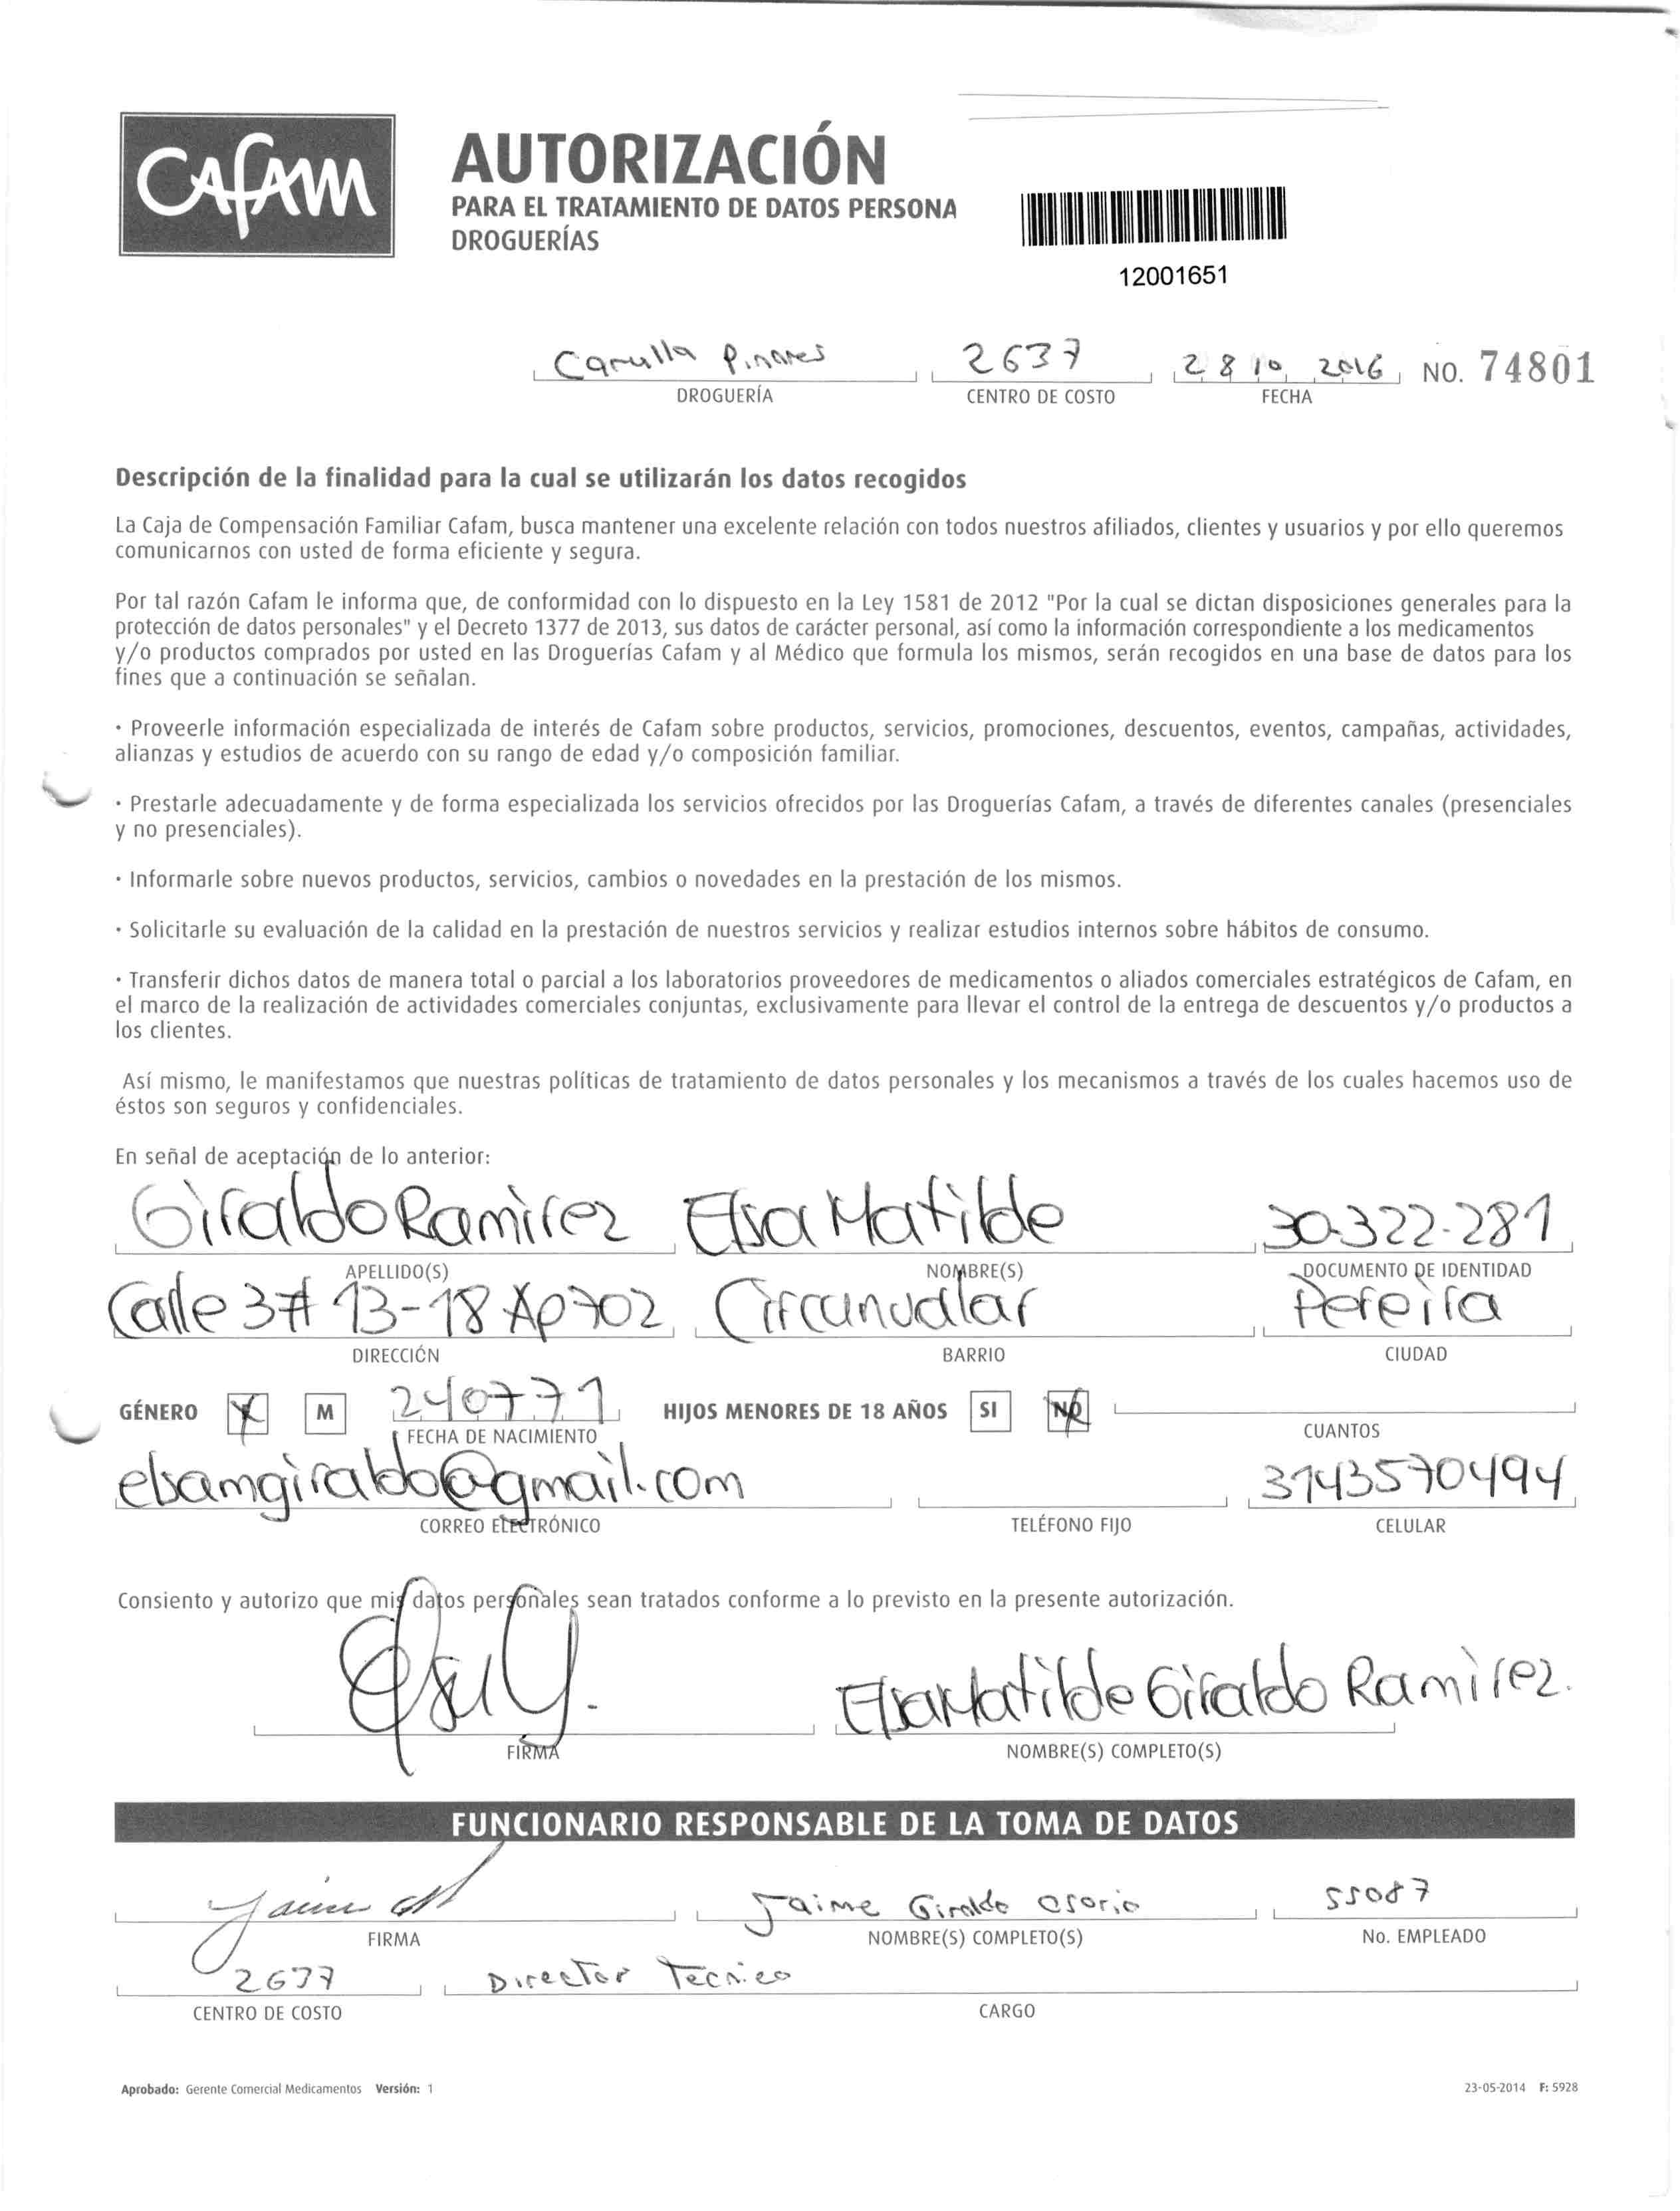 Cafam
AUTORIZACIÓN
PARA EL TRATAMIENTO DE DATOS PERSONA
DROGUERÍAS
12001651
Carulla Pinares 2637 28 10 2016 NO. 74801
DROGUERÍA CENTRO DE COSTO FECHA
Descripción de la finalidad para la cual se utilizarán los datos recogidos
La Caja de Compensación Familiar Cafam, busca mantener una excelente relación con todos nuestros afiliados, clientes y usuarios y por ello queremos
comunicarnos con usted de forma eficiente y segura.
Por tal razón Cafam le informa que, de conformidad con lo dispuesto en la Ley 1581 de 2012 "Por la cual se dictan disposiciones generales para la
protección de datos personales" y el Decreto 1377 de 2013, sus datos de carácter personal, así como la información correspondiente a los medicamentos
y/o productos comprados por usted en las Droguerías Cafam y al Médico que formula los mismos, serán recogidos en una base de datos para los
fines que a continuación se señalan.
· Proveerle información especializada de interés de Cafam sobre productos, servicios, promociones, descuentos, eventos, campañas, actividades,
alianzas y estudios de acuerdo con su rango de edad y/o composición familiar.
· Prestarle adecuadamente y de forma especializada los servicios ofrecidos por las Droguerías Cafam, a través de diferentes canales (presenciales
y no presenciales).
· Informarle sobre nuevos productos, servicios, cambios o novedades en la prestación de los mismos.
· Solicitarle su evaluación de la calidad en la prestación de nuestros servicios y realizar estudios internos sobre hábitos de consumo.
· Transferir dichos datos de manera total o parcial a los laboratorios proveedores de medicamentos o aliados comerciales estratégicos de Cafam, en
el marco de la realización de actividades comerciales conjuntas, exclusivamente para llevar el control de la entrega de descuentos y/o productos a
los clientes.
Así mismo, le manifestamos que nuestras políticas de tratamiento de datos personales y los mecanismos a través de los cuales hacemos uso de
éstos son seguros y confidenciales.
En señal de aceptación de lo anterior:
Giraldo Ramirez Elsa Matilde 30.322.281
APELLIDO(S) NOMBRE(S) DOCUMENTO DE IDENTIDAD
Calle 3# 13-18 Ap 702 Circunvalar Pereira
DIRECCIÓN BARRIO CIUDAD
GÉNERO X M 240771 HIJOS MENORES DE 18 AÑOS SI NO
FECHA DE NACIMIENTO CUANTOS
elsamgiraldo@gmail.com 3143570494
CORREO ELECTRÓNICO TELÉFONO FIJO CELULAR
Consiento y autorizo que mis datos personales sean tratados conforme a lo previsto en la presente autorización.
Elsa Matilde Giraldo Ramirez.
FIRMA NOMBRE(S) COMPLETO(S)
FUNCIONARIO RESPONSABLE DE LA TOMA DE DATOS
Jaime Jaime Giraldo Osorio 55087
FIRMA NOMBRE(S) COMPLETO(S) No. EMPLEADO
2637 Director Tecnico
CENTRO DE COSTO CARGO
Aprobado: Gerente Comercial Medicamentos Versión: 1 23-05-2014 F: 5928